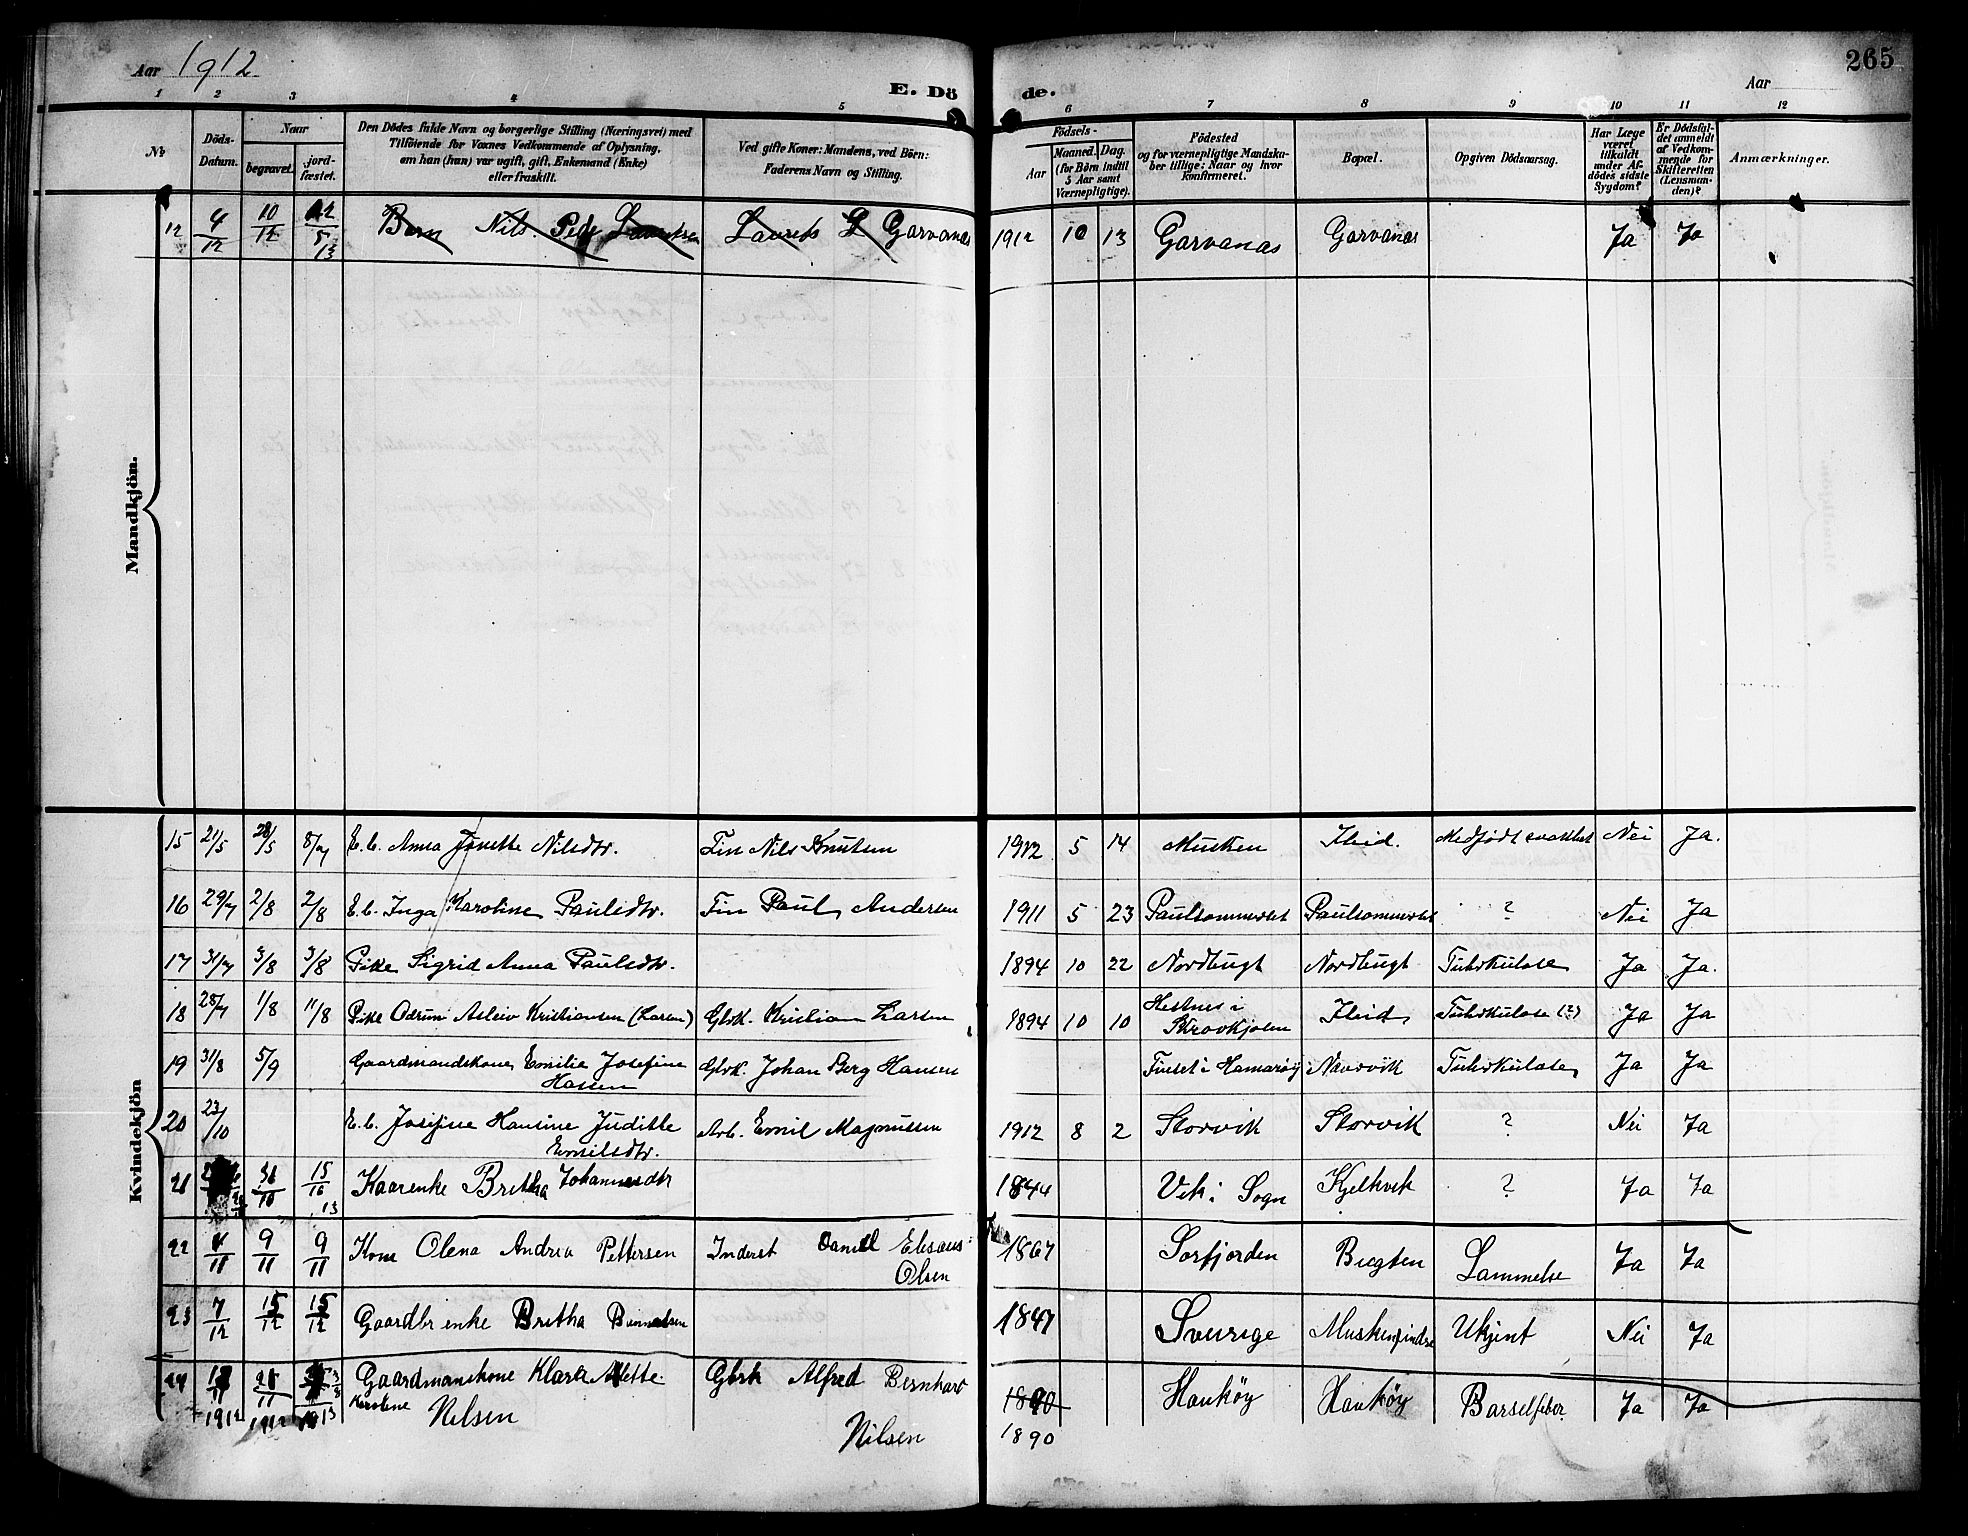 Aar 1912
E. Dö
de.
265
Aar
1 2 3 4 5 6 7 8 9 10 11 12
№
Döds-Datum.
Naar
begravet.
jord-fæstet.
Den Dödes fulde Navn og borgerlige Stilling (Næringsvei) med
Tilföiende for Voxnes Vedkommende af Oplysning,
om han (hun) var ugift, gift, Enkemand (Enke)
eller fraskilt.
Ved gifte Koner: Mandens, ved Börn:
Faderens Navn og Stilling.
Födsels-
Aar
Maaned. Dag.
(for Børn indtil
5 Aar samt
Værnepligtige).
Födested
og for værnepligtige Mandska-
ber tillige: Naar og hvor
konfirmeret.
Bopæl.
Opgiven Dödsaarsag.
Har Læge
været
tilkaldt
under Af-
dödes sidste
Sygdom?
Er Dödsfal-
det anmeldt
af Vedkom-
mende for
Skifteretten
(Lensman-
den)?
Anmærkninger.
Mandkjön.
12 4/12 10/12 Barn Nils Peder Lauritsen Laurits L Garvanas 1912 10 13 Garvanas Garvanas Ja Ja
Kvindekjön
15 21/5 28/5 8/7 E.b. Anna Jonette Nilsdtr. Fin Nils Knutsen 1912 5 14 Musken Ilvid. Medfødt svakhet Nei Ja.
16 29/7 2/8 2/8 E.b. Inga Karoline Paulsdtr. Fin Paul Andersen 1911 5 23 Paulsommerset Paulsommerset ? Nei Ja
17 31/7 3/8 3/8 Pike Sigrid Anna Paulsdtr. 1894 10 22 Nordbugt Nordbugt Tuberkulose Ja Ja.
18 28/7 1/8 11/8 Pike Odrun Asleiv Kristiansen (Larsen) Gbrk. Kristian Larsen 1894 10 10 Hestnes i
Skrovkjosen Ilvid Tuberkulose (?) Ja Ja
19 31/8 5/9 Gaardmandskone Emilie Josefine
Hansen Gbrk. Johan Berg Hansen Finset i Hamarøy Narvik Tuberkulose Ja Ja
20 23/10 E.b. Josefine Hansine Juditte
Emilsdtr. Arb. Emil Magnussen 1912 8 2 Storvik Storvik ? Nei Ja
21 15/10 13 Kaarenke Britha Johannesdtr 1844 Vik i Sogn Kjelkvik ? Ja Ja
22 9/11 9/11 Kone Olena Andrea Pettersen Inderst Daniel Elisæus
Olsen 1867 Sørfjorden Bugten Lammelse Ja Ja
23 7/12 15/12 15/12 Gaardbr enke Britha 1847 Sverige Muskenfindre Ukjent Nei Ja
24 Gaardmanskone Klara Alette
Karoline Nilsen Gbrk Alfred Bernhard
Nilsen 1890 Haukøy Haukøy Barselfeber. Ja Ja
1912 1912 1913
1890